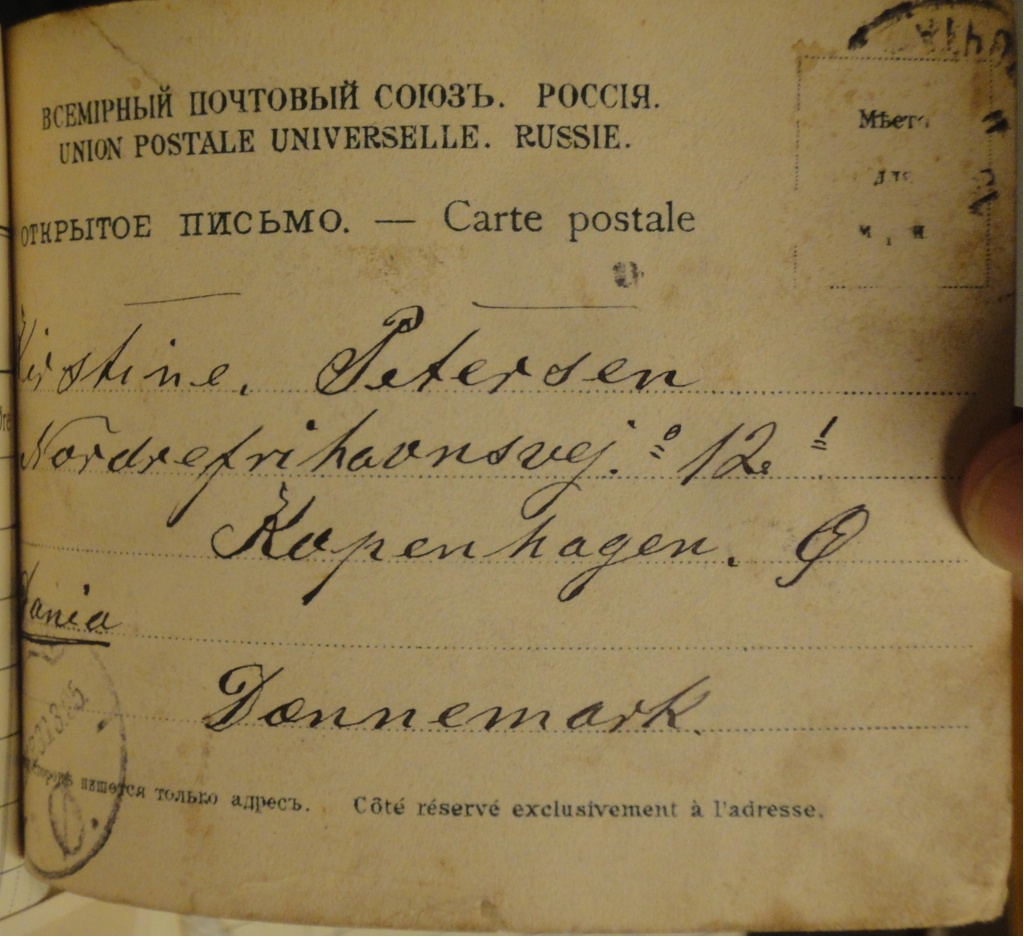 ВСЕМІРНЫЙ ПОЧТОВЫЙ СОЮЗЪ. РОССІЯ.
UNION POSTALE UNIVERSELLE. RUSSIE.
ОТКРЫТОЕ ПИСЬМО. — Carte postale
Kirstine. Petersen
Nordrefrihavnsvej. 12
Kopenhagen. Ø
Dania
Dænnemark.
пишется только адресъ. Côté réservé exclusivement à l'adresse.